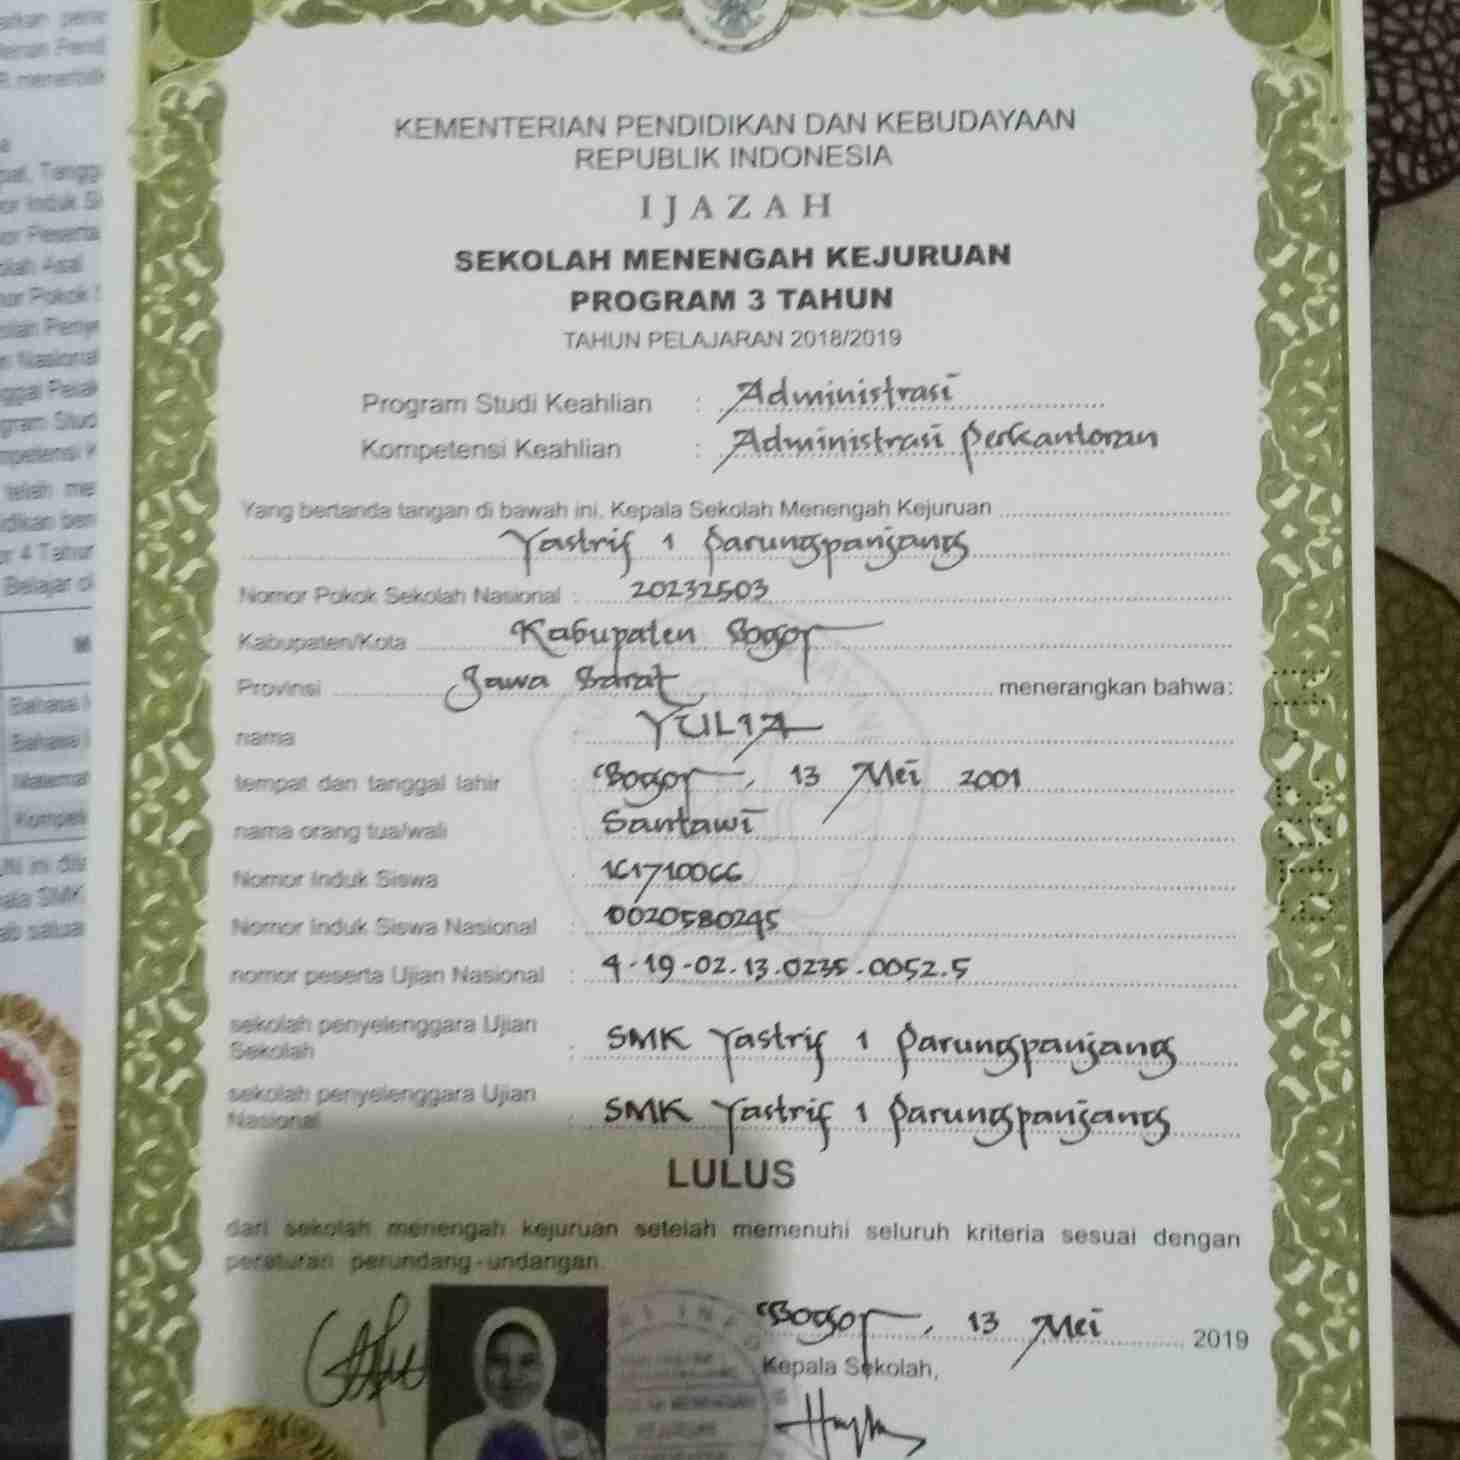 KEMENTERIAN PENDIDIKAN DAN KEBUDAYAAN
REPUBLIK INDONESIA
IJAZAH
SEKOLAH MENENGAH KEJURUAN
PROGRAM 3 TAHUN
TAHUN PELAJARAN 2018/2019
Program Studi Keahlian : Administrasi
Kompetensi Keahlian : Administrasi Perkantoran
Yang bertanda tangan di bawah ini, Kepala Sekolah Menengah Kejuruan
Yastrif 1 Parungpanjang
Nomor Pokok Sekolah Nasional : 20232503
Kabupaten/Kota Kabupaten Bogor
Provinsi Jawa Barat menerangkan bahwa:
nama : YULIA
tempat dan tanggal lahir : Bogor, 13 Mei 2001
nama orang tua/wali : Santawi
Nomor Induk Siswa : 161710066
Nomor Induk Siswa Nasional : 0020580245
nomor peserta Ujian Nasional : 4-19-02.13.0235.0052.5
sekolah penyelenggara Ujian
Sekolah : SMK Yastrif 1 Parungpanjang
sekolah penyelenggara Ujian
Nasional : SMK Yastrif 1 Parungpanjang
LULUS
dari sekolah menengah kejuruan setelah memenuhi seluruh kriteria sesuai dengan
peraturan perundang-undangan.
Bogor, 13 Mei 2019
Kepala Sekolah,